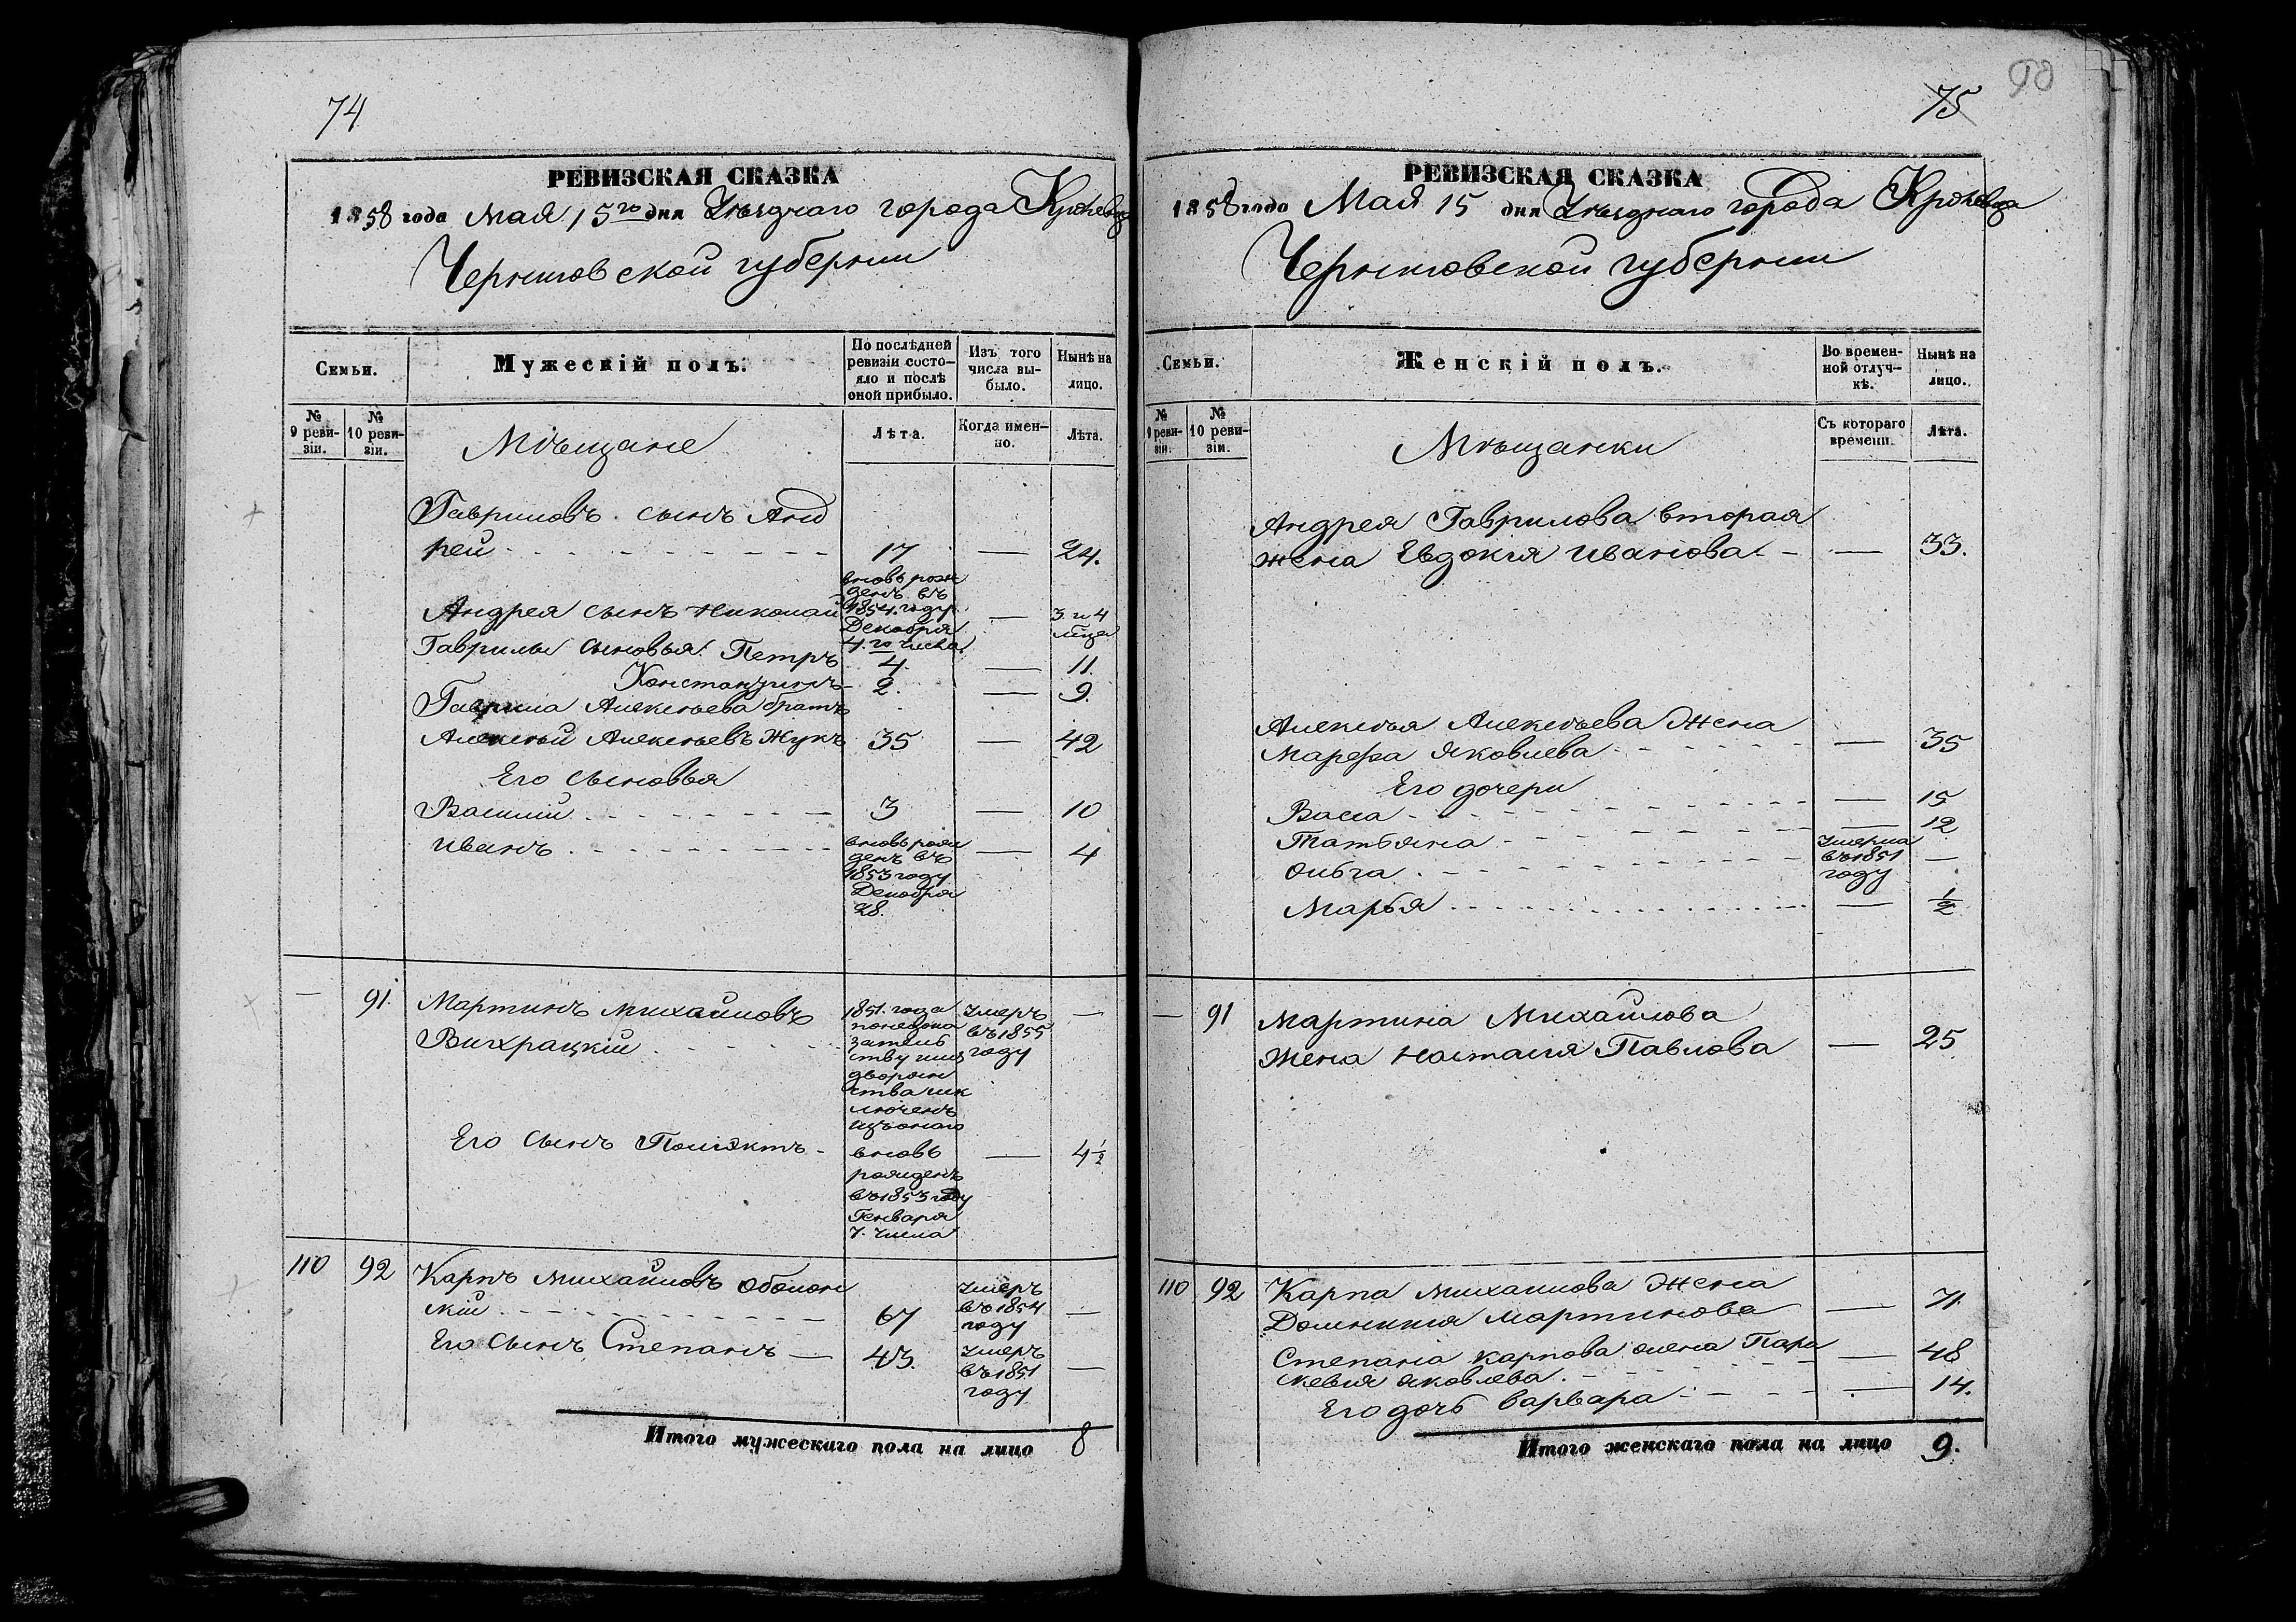 74
РЕВИЗСКАЯ СКАЗКА
1858 года Мая 15го дня Уѣзднаго города Кролевца
Черниговской губернии
Семьи.
Мужескій полъ.
По послѣдней ревизіи состо-
яло и послѣ оной прибыло.
Изъ того числа вы-
было.
Нынѣ на лицо.
№ 9 реви-
зіи.
№ 10 реви-
зіи.
Мѣщане
Лѣта.
Когда имен-
но.
Лѣта.
Гавриловъ сынъ Анд
рей 17 — 24.
Андрея сынъ Николай
вновь рож
денъ въ
1854 году
Декабря
4го числа
— 3 и 4
мѣца
Гаврилы сыновья Петръ 4. — 11.
Константинъ 2. — 9.
Гаврила Алексѣева братъ
Алексѣй Алексѣевъ Жукъ 35 — 42
Его сыновья
Василий 3 — 10
Иванъ
вновь рож
денъ въ
1853 году
Декабря
28.
— 4
— 91. Мартинъ Михайловъ
Вихрацкій
1851. года
по недока
затель
ству имъ
дворян
ства иск
люченъ
изъ онаго
Умеръ
въ 1855
году
—
Его сынъ Полиэктъ
вновь
рожденъ
въ 1853 году
Генваря
7. числа
— 4½
110 92 Карпъ Михайловъ Оболон
скій 67
Умеръ
въ 1854
году
—
Его сынъ Степанъ — 43.
Умеръ
въ 1851
году
—
Итого мужескаго пола на лицо 8
75
90
РЕВИЗСКАЯ СКАЗКА
1858 года Мая 15 дня Уѣзднаго города Кролевца
Черниговской губернии
Семьи.
Женскій полъ.
Во времен-
ной отлуч-
кѣ.
Нынѣ на лицо.
№ 9 реви-
зіи.
№ 10 реви-
зіи.
Мѣщанки
Съ котораго времени.
Лѣта.
Андрея Гаврилова вторая
жена Евдокия Иванова — 33.
Алексѣя Алексѣева Жена
Марефа Яковлева — 35
Его дочери
Васса — 15
Татьяна — 12
Ольга
Умерла
въ 1851
году
—
Марья — ½
— 91 Мартина Михайлова
Жена Настасия Павлова — 25
110 92 Карпа Михаилова Жена
Домникия Мартинова — 71.
Степана Карпова жена Пара
скевия Яковлева — 48
Его дочь Варвара — 14.
Итого женскаго пола на лицо 9.